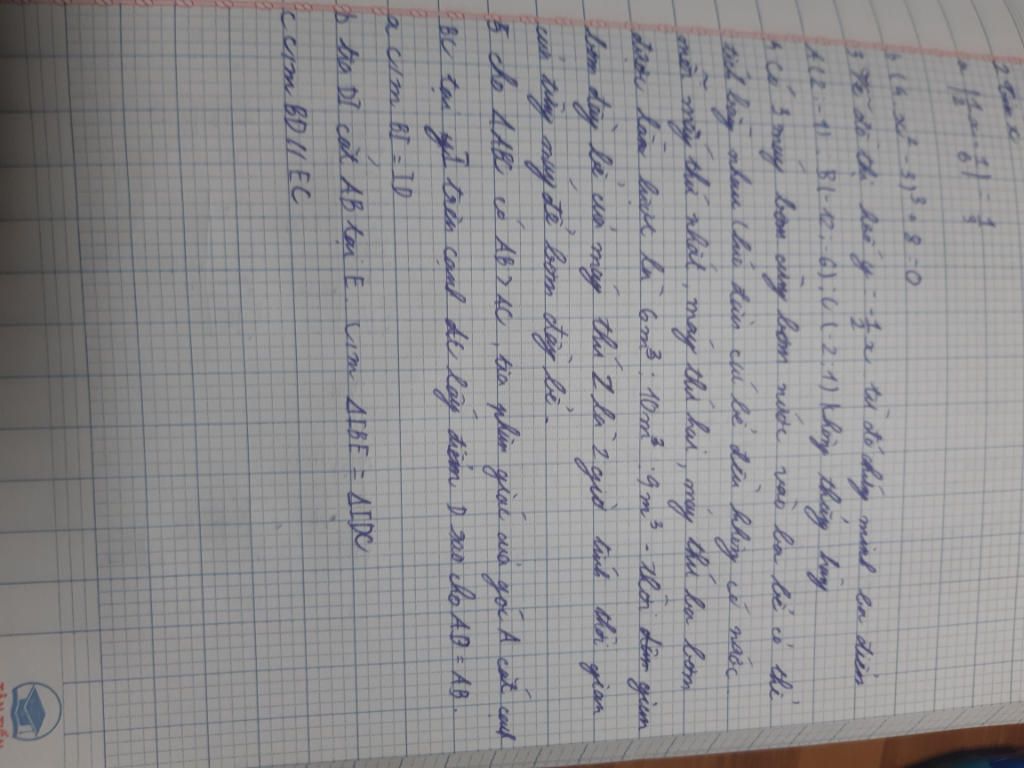 2 tìm x
a |1/2 x - 1/6| - 1/3
b (4 x² - 3)³ + 8 = 0
3 Vẽ đồ thị h/số y = -1/2 x từ đó chứng minh ba điểm
A(2 -1) B(-12; 6), C(-2. 1) thẳng hàng
4 Có 3 máy bơm cùng bơm nước vào ba bể có thể
tích bằng nhau (lúc đầu các bể đều không có nước
mỗi máy thứ nhất, máy thứ hai, máy thứ ba bơm
được lần lượt là 6m³. 10m³. 9m³ - thời gian
bơm đầy bể của máy thứ 2 là 2 giờ tính thời gian
của từng máy để bơm đầy bể.
5 cho ΔABC có AB > AC, tia phân giác của góc A cắt cạnh
BC tại I trên cạnh AC lấy điểm D sao cho AD = AB.
a c/m BI = ID
b tia DI cắt AB tại E. c/m ΔIBE = ΔIDC
c c/m BD // EC